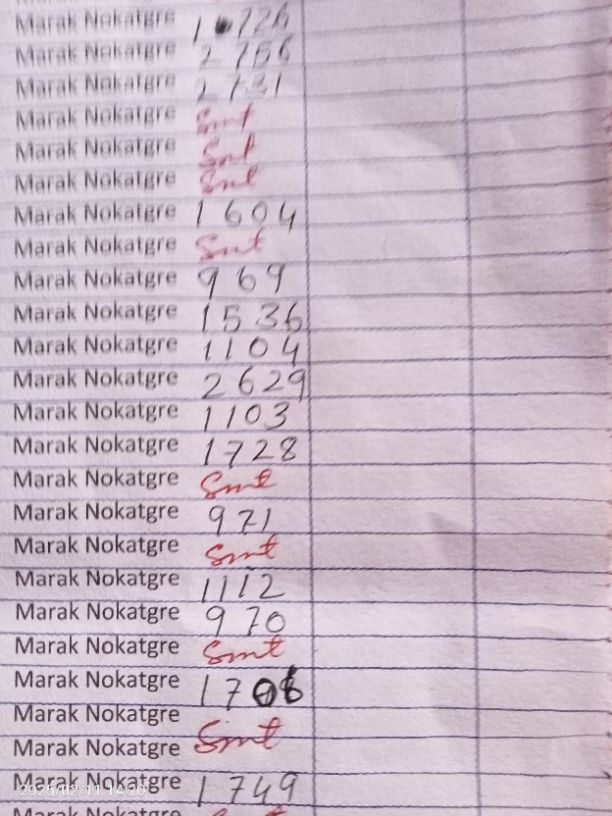 Marak Nokatgre 1 726
Marak Nokatgre 2756
Marak Nokatgre 2731
Marak Nokatgre Smt
Marak Nokatgre Smt
Marak Nokatgre Smt
Marak Nokatgre 1604
Marak Nokatgre Smt
Marak Nokatgre 969
Marak Nokatgre 1536
Marak Nokatgre 1104
Marak Nokatgre 2629
Marak Nokatgre 1103
Marak Nokatgre 1728
Marak Nokatgre Smt
Marak Nokatgre 971
Marak Nokatgre Smt
Marak Nokatgre 1112
Marak Nokatgre 970
Marak Nokatgre Smt
Marak Nokatgre 1706
Marak Nokatgre
Marak Nokatgre Smt
Marak Nokatgre 1749
2025/02/11 14:20
Marak Nokatgre